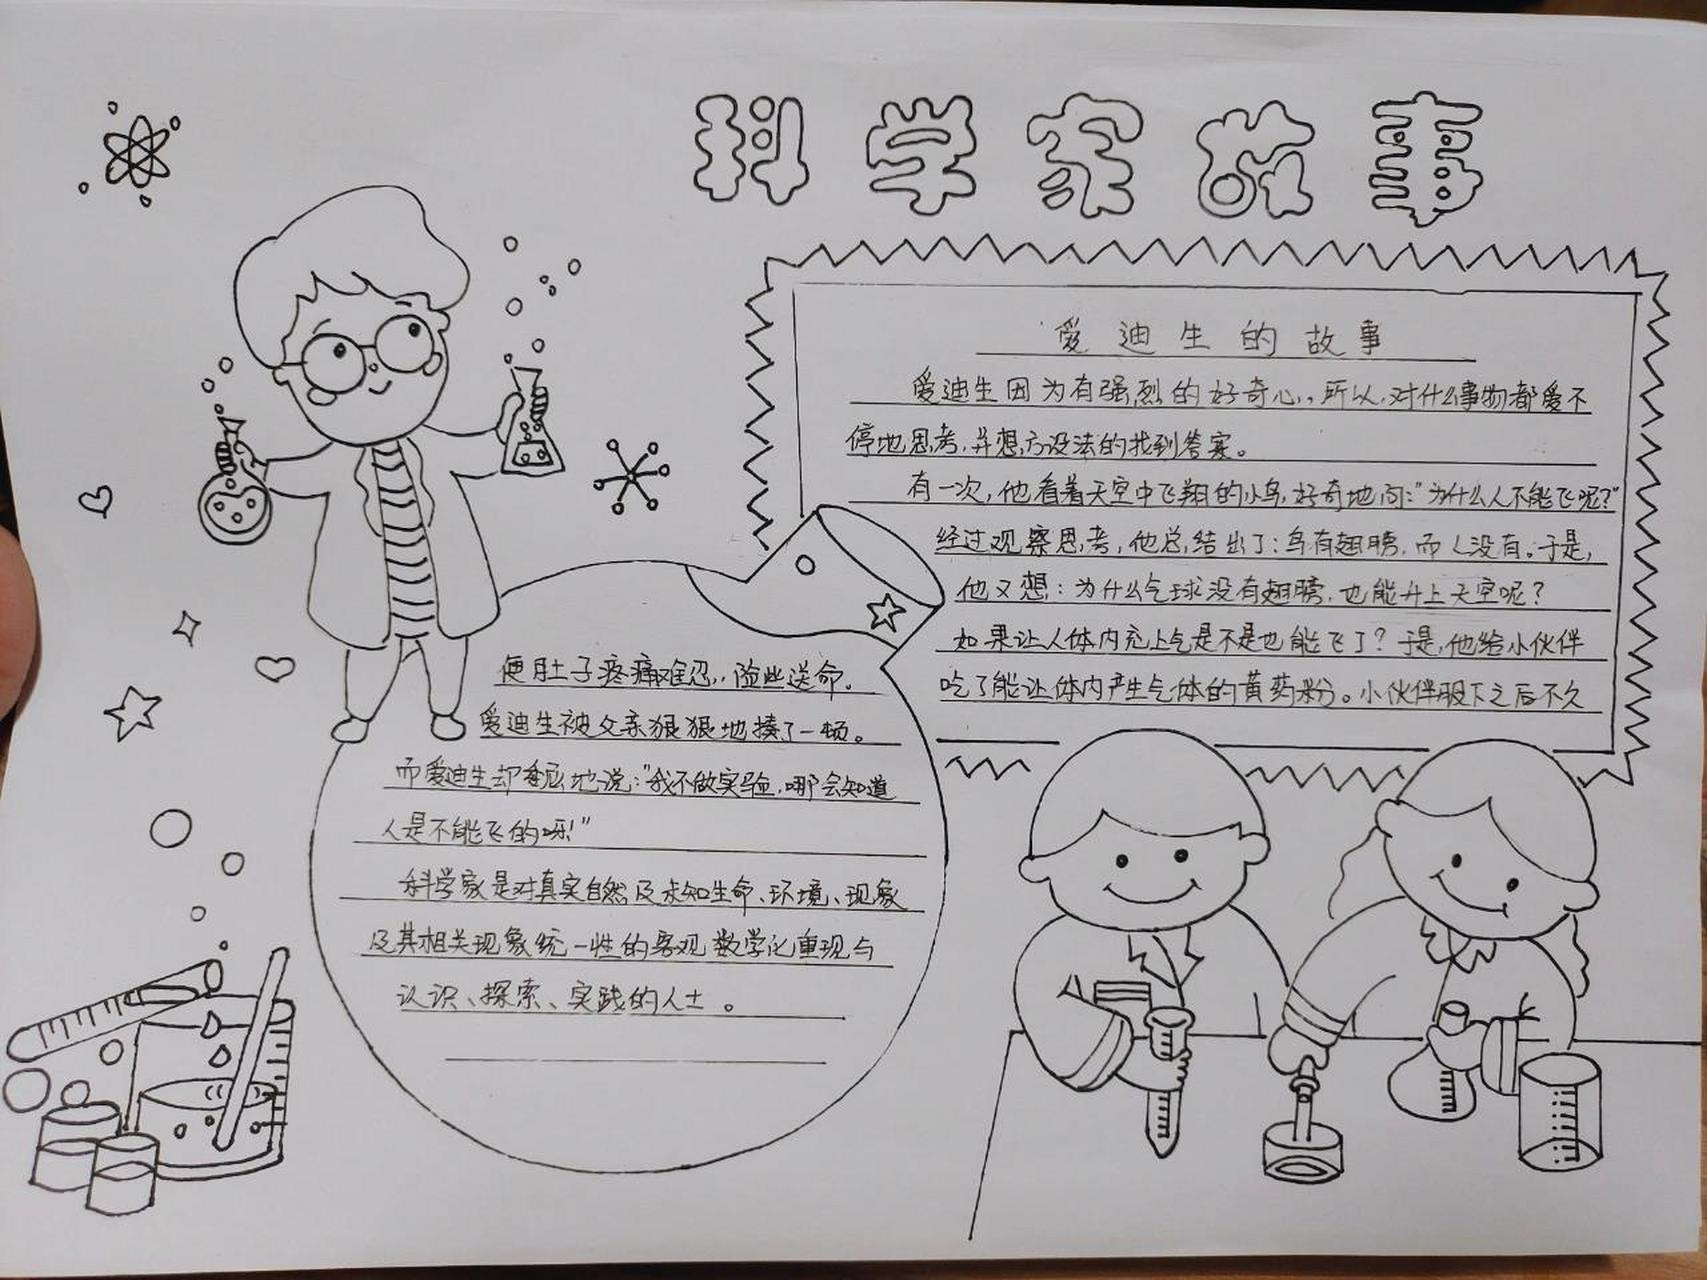 科学家故事
爱迪生的故事
爱迪生因为有强烈的好奇心,所以,对什么事物都爱不
停地思考,并想方设法的找到答案。
有一次,他看着天空中飞翔的小鸟,好奇地问:"为什么人不能飞呢?"
经过观察思考,他总结出了:鸟有翅膀,而人没有。于是,
他又想:为什么气球没有翅膀,也能升上天空呢?
如果让人体内充上气是不是也能飞了?于是,他给小伙伴
吃了能让体内产生气体的黄药粉。小伙伴服下之后不久
便肚子疼痛难忍,险些送命。
爱迪生被父亲狠狠地揍了一顿。
而爱迪生却委屈地说:"我不做实验,哪会知道
人是不能飞的呀!"
科学家是对真实自然及未知生命、环境、现象
及其相关现象统一性的客观数学化重现与
认识、探索、实践的人士。